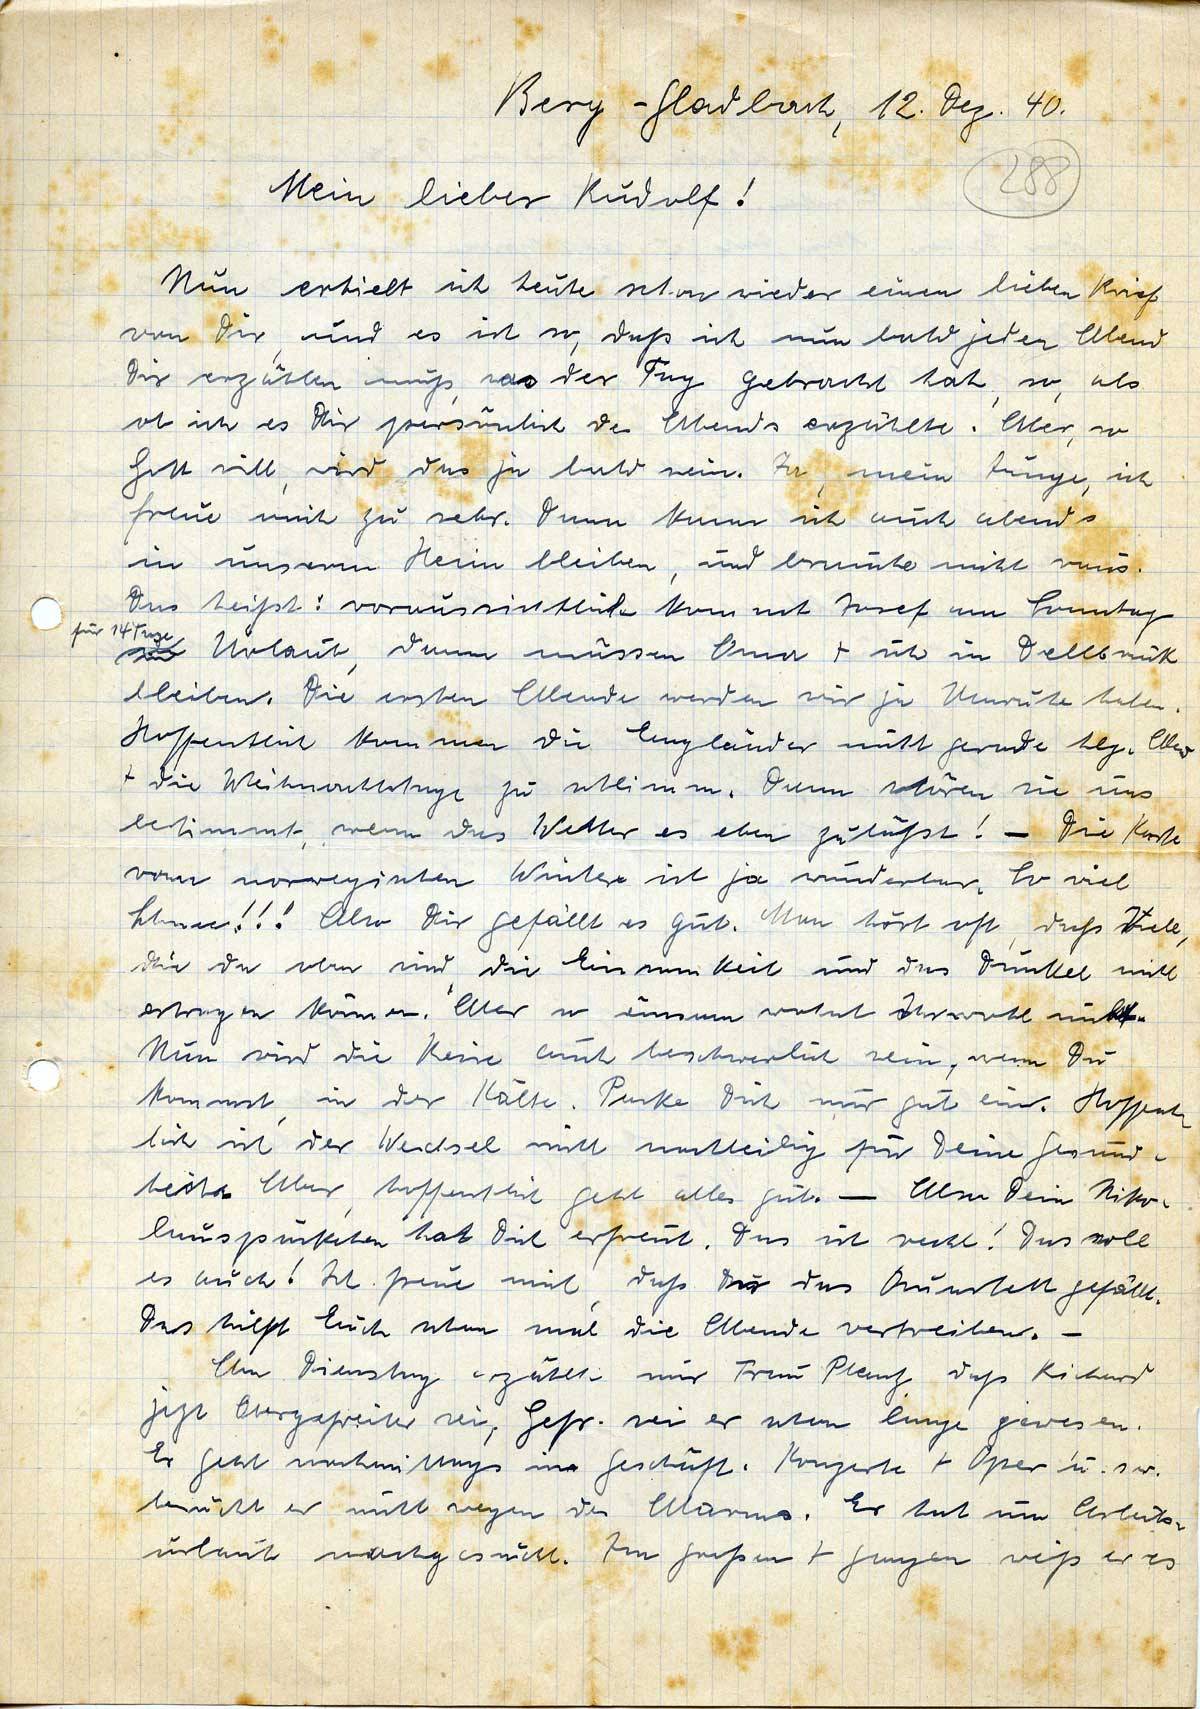 Berg-Gladbach, 12. Dez. 40.
288
Mein lieber Rudolf!
Nun erhielt ich heute schon wieder einen lieben Brief
von Dir, und es ist so, daß ich nun bald jeden Abend
Dir erzählen muß, was der Tag gebracht hat, so, als
ob ich es Dir persönlich des Abends erzählte. Aber, so
Gott will, wird das ja bald sein. Ja, mein Junge, ich
freue mich zu sehr. Dann kann ich auch abends
in unserem Heim bleiben, und brauche nicht raus.
Das heißt: voraussichtlich kommt Josef am Sonntag
für 14 Tage
Urlaub, dann müssen Oma + ich in Dellbrück
bleiben. Die ersten Abende werden wir ja Unruhe haben.
Hoffentlich kommen die Engländer nicht gerade hlg. Abend
+ die Weihnachtstage zu schlimm. Dann stören sie uns
bestimmt, wenn das Wetter es eben zuläßt! – Die Karte
vom norwegischen Winter ist ja wunderbar. So viel
Schnee!!! Also Dir gefällt es gut. Man hört oft, daß Viele,
die da oben sind, die Einsamkeit und das Dunkel nicht
ertragen können. Aber so einsam wohnt Ihr wohl nicht.
Nun wird die Reise auch beschwerlich sein, wenn Du
kommst, in der Kälte. Packe Dich nur gut ein. Hoffent-
lich ist der Wechsel nicht nachteilig für Deine Gesund-
heit. Aber, hoffentlich geht alles gut. — Also Dein Niko-
lauspäckchen hat Dich erfreut. Das ist recht! Das soll
es auch! Ich freue mich, daß Dir das gefällt.
Das hilft Euch schon mal die Abende vertreiben. –
Am Dienstag erzählte mir Frau daß Richard
jetzt Obergefreiter sei, Gefr. sei er schon lange gewesen.
Er geht nachmittags ins Geschäft. Konzerte + Oper u.s.w.
besucht er nicht wegen des Alarms. Er hat um Arbeits-
urlaub nachgesucht. Im großen + ganzen weiß er es